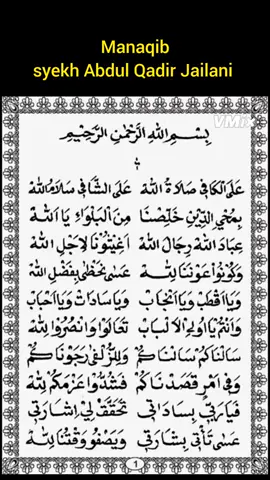 Manaqib
syekh Abdul Qadir Jailani
VMix
بِسْمِ اللهِ الرَّحْمٰنِ الرَّحِيْمِ
عَلَى الْكَافِيْ صَلَاةُ اللهْ عَلَى الشَّافِيْ سَلَامُ اللهْ
بِمُحْيِ الدِّيْنِ خَلِّصْنَا مِنَ الْبَلْوَاءِ يَا اَللهْ
عِبَادَ اللهْ رِجَالَ اللهْ اَغِيْثُوْنَا لِاَجْلِ اللهْ
وَكُوْنُوْا عَوْنَنَا لِلّٰهْ عَسٰى نَحْظٰى بِفَضْلِ اللهْ
وَيَا اَقْطَابْ وَيَا اَنْجَابْ وَيَا سَادَاتْ وَيَا اَحْبَابْ
وَاَنْتُمْ يَا اُولِى الْاَلْبَابْ تَعَالَوْا وَانْصُرُوْا لِلّٰهْ
سَاَلْنَاكُمْ سَاَلْنَاكُمْ وَلِلزُّلْفٰى رَجَوْنَاكُمْ
وَفِيْ اَمْرٍ قَصَدْنَاكُمْ فَشُدُّوْا عَزْمَكُمْ لِلّٰهْ
فَيَا رَبِّيْ بِسَادَاتِيْ تَحَقَّقْ لِيْ اِشَارَتِيْ
عَسٰى تَأْتِيْ بِشَارَتِيْ وَيَصْفُوْ وَقْتُنَا لِلّٰهْ
1